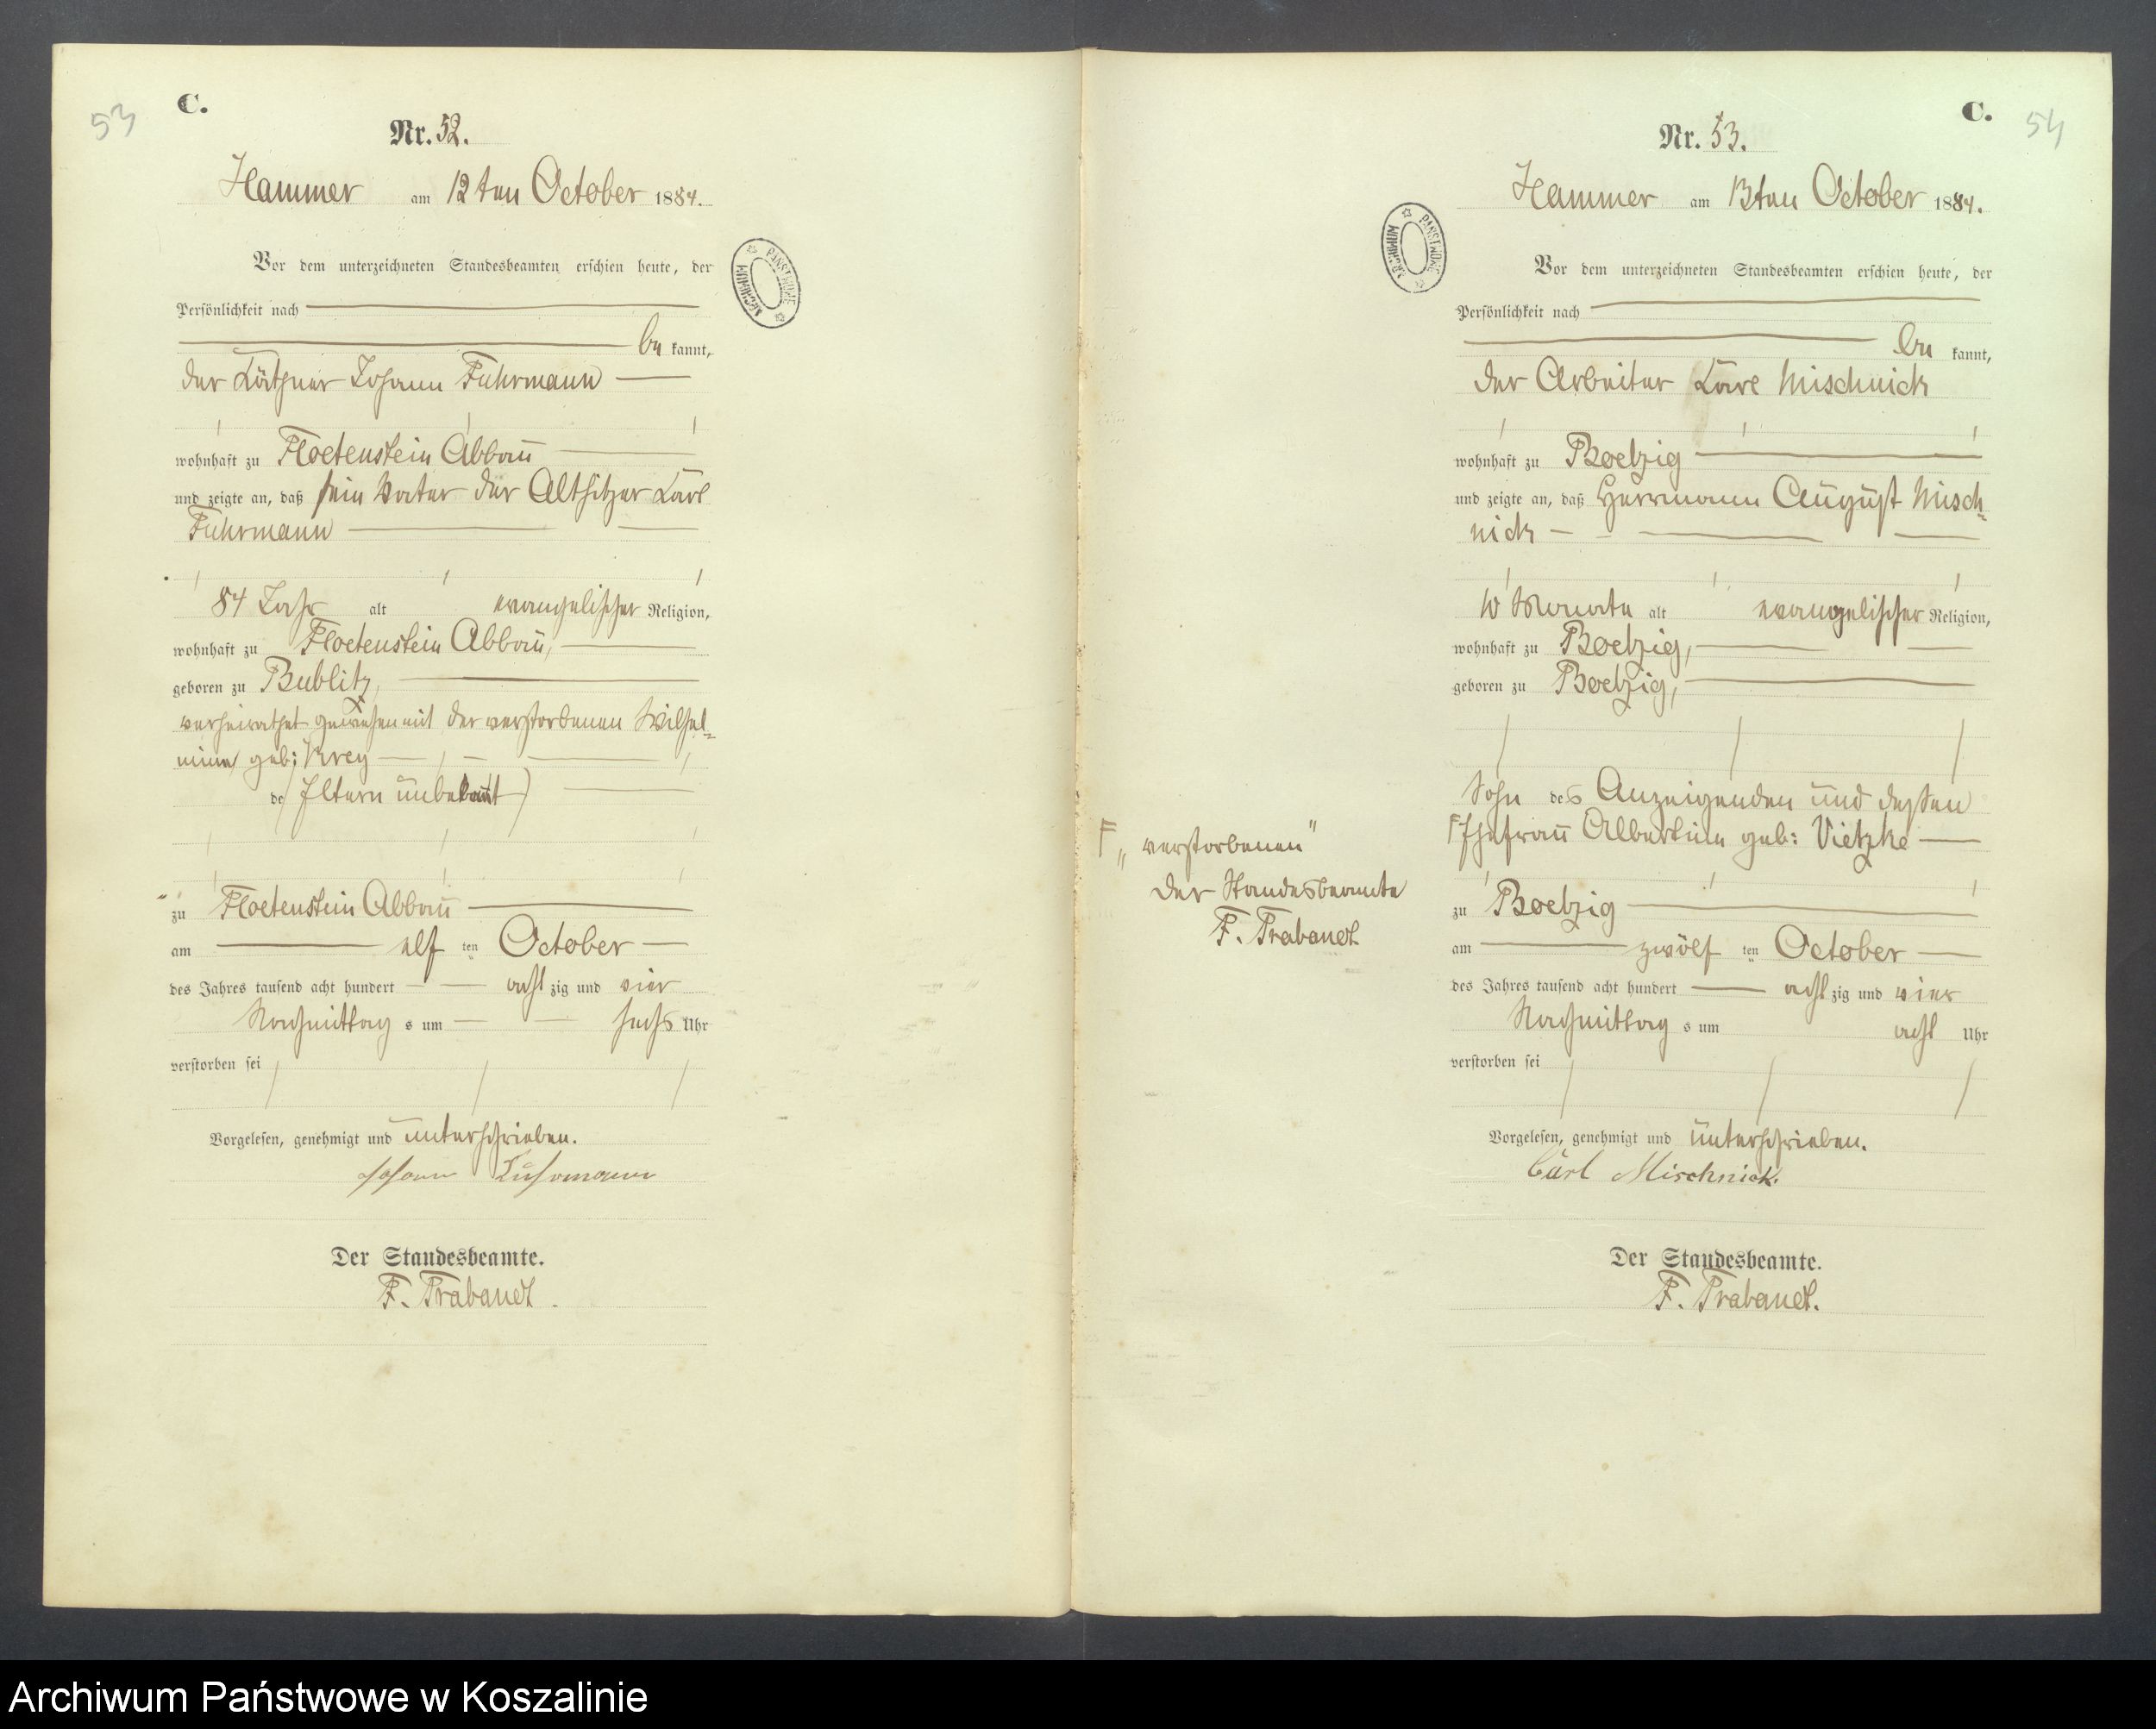 53
C.
Nr. 52.
Hammer am 12ten October 1884.
Vor dem unterzeichneten Standesbeamten erschien heute, der
Persönlichkeit nach
bekannt,
der Käthner Johann Fuhrmann
wohnhaft zu Floetenstein Abbau
und zeigte an, daß sein Vater der Altsitzer Karl
Fuhrmann
84 Jahr alt evangelischer Religion,
wohnhaft zu Floetenstein Abbau,
geboren zu Bublitz,
verheirathet gewesen mit der verstorbenen Wilhel=
mine geb: Krey
de (Eltern unbekannt)
zu Floetenstein Abbau
am elf ten October
des Jahres tausend acht hundert acht zig und vier
Nachmittag s um sechs Uhr
verstorben sei
Vorgelesen, genehmigt und unterschrieben.
Johann Fuhrmann
Der Standesbeamte.
F. Trabandt.
ARCHIWUM PAŃSTWOWE
C.
54
Nr. 53.
Hammer am 13ten October 1884.
ARCHIWUM PAŃSTWOWE
Vor dem unterzeichneten Standesbeamten erschien heute, der
Persönlichkeit nach
bekannt,
der Arbeiter Karl Mischnick
wohnhaft zu Boetzig
und zeigte an, daß Herrmann August Misch=
nick
10 Monate alt evangelischer Religion,
wohnhaft zu Boetzig,
geboren zu Boetzig,
Sohn des Anzeigenden und dessen
F Ehefrau Albertine geb: Vietzke
F „verstorbenen"
Der Standesbeamte
F. Trabandt
zu Boetzig
am zwölf ten October
des Jahres tausend acht hundert acht zig und vier
Nachmittag s um acht Uhr
verstorben sei
Vorgelesen, genehmigt und unterschrieben.
Carl Mischnick.
Der Standesbeamte.
F. Trabandt.
Archiwum Państwowe w Koszalinie